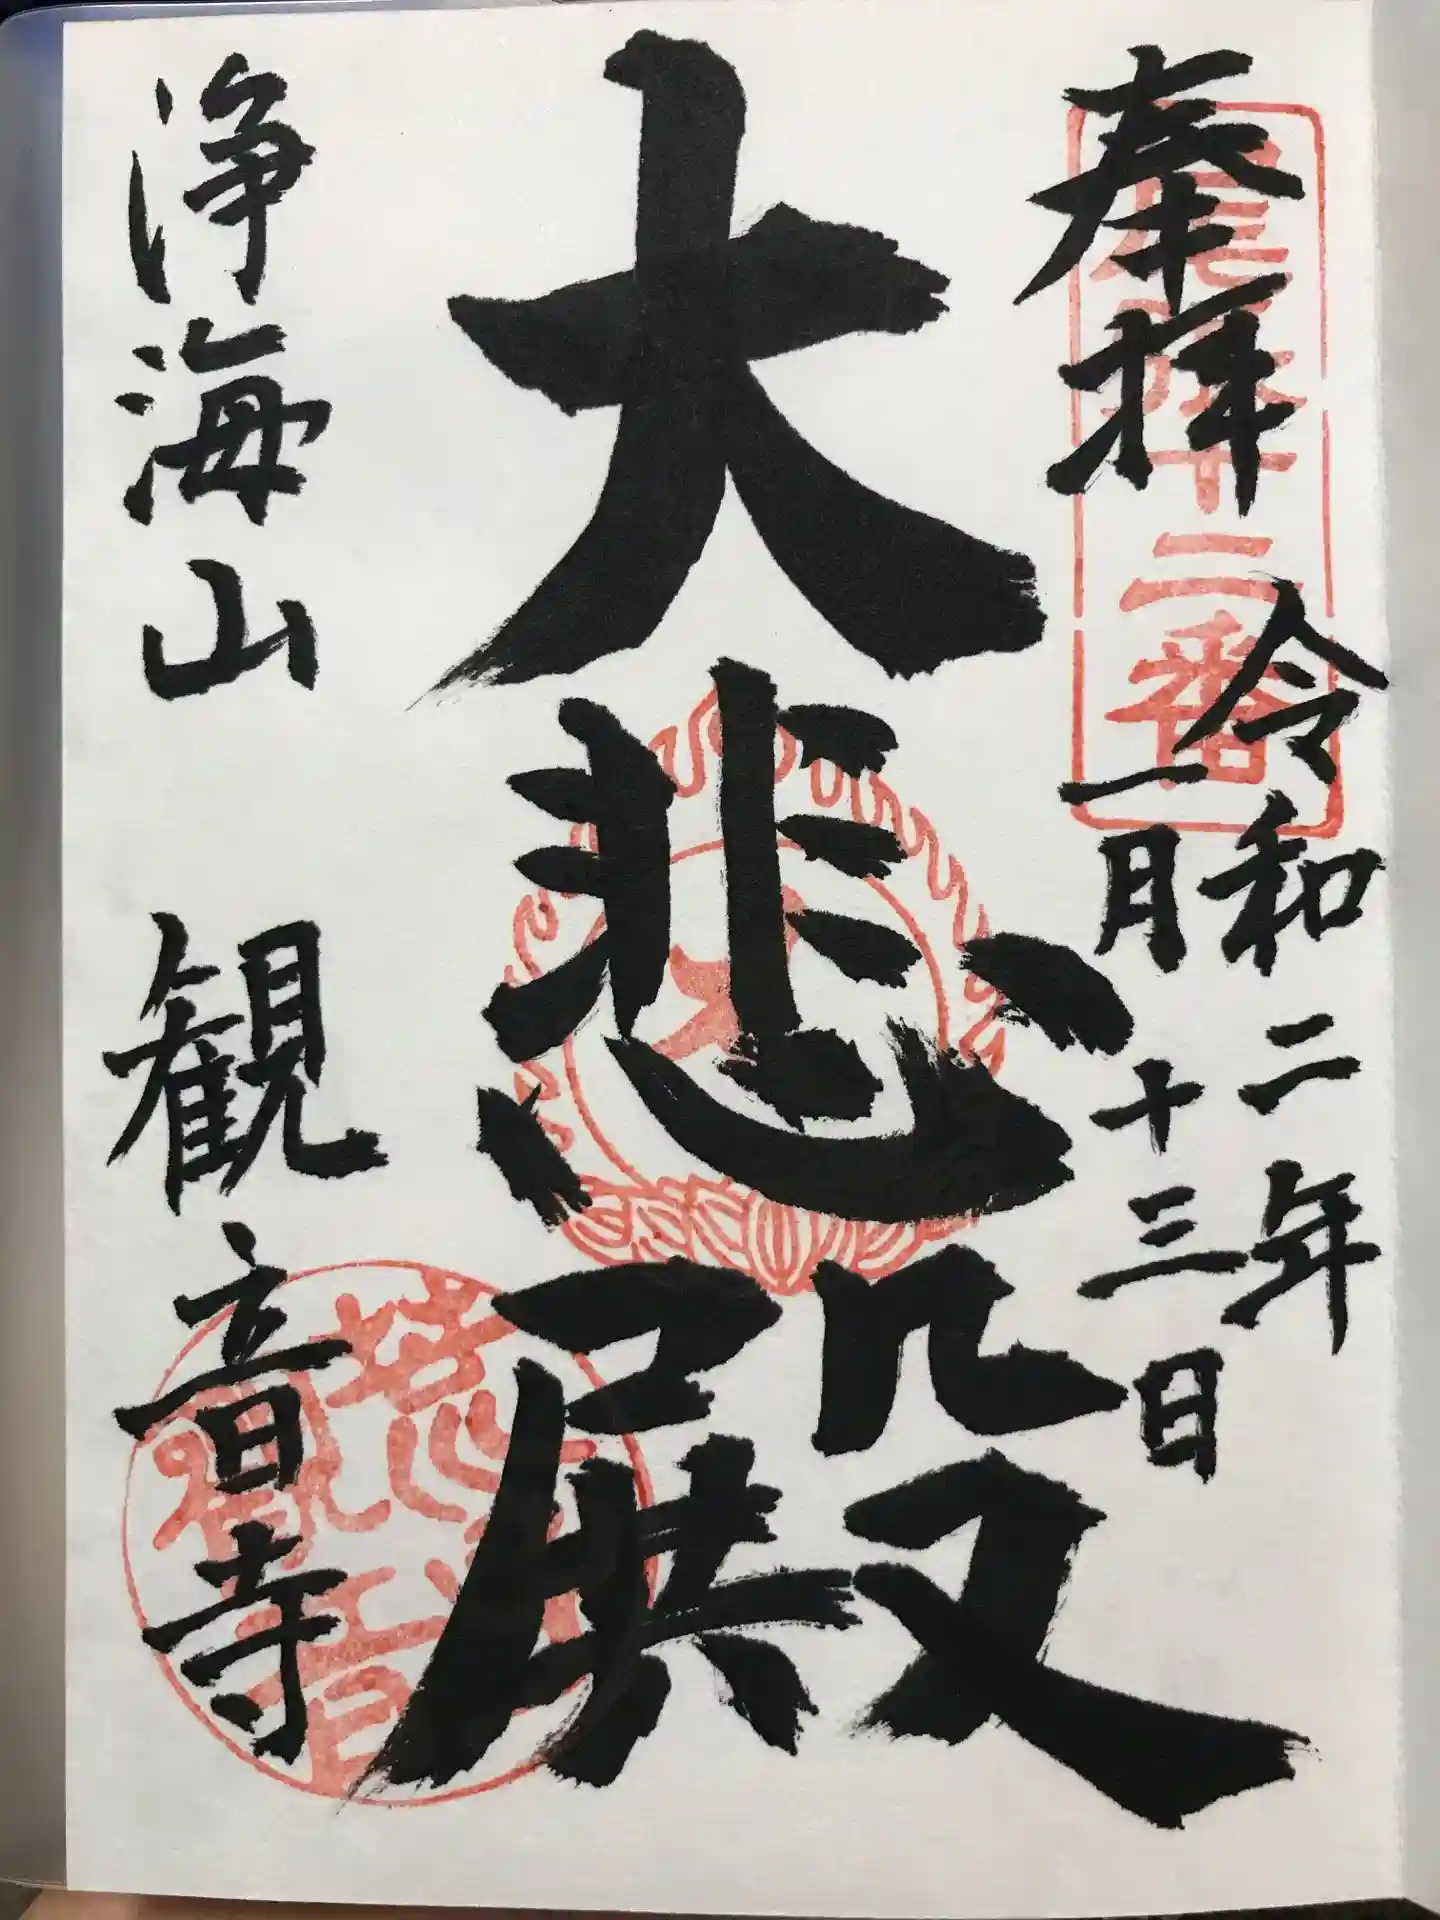 奉拝
令和二年
一月十三日
大悲殿
浄海山 観音寺
十二番